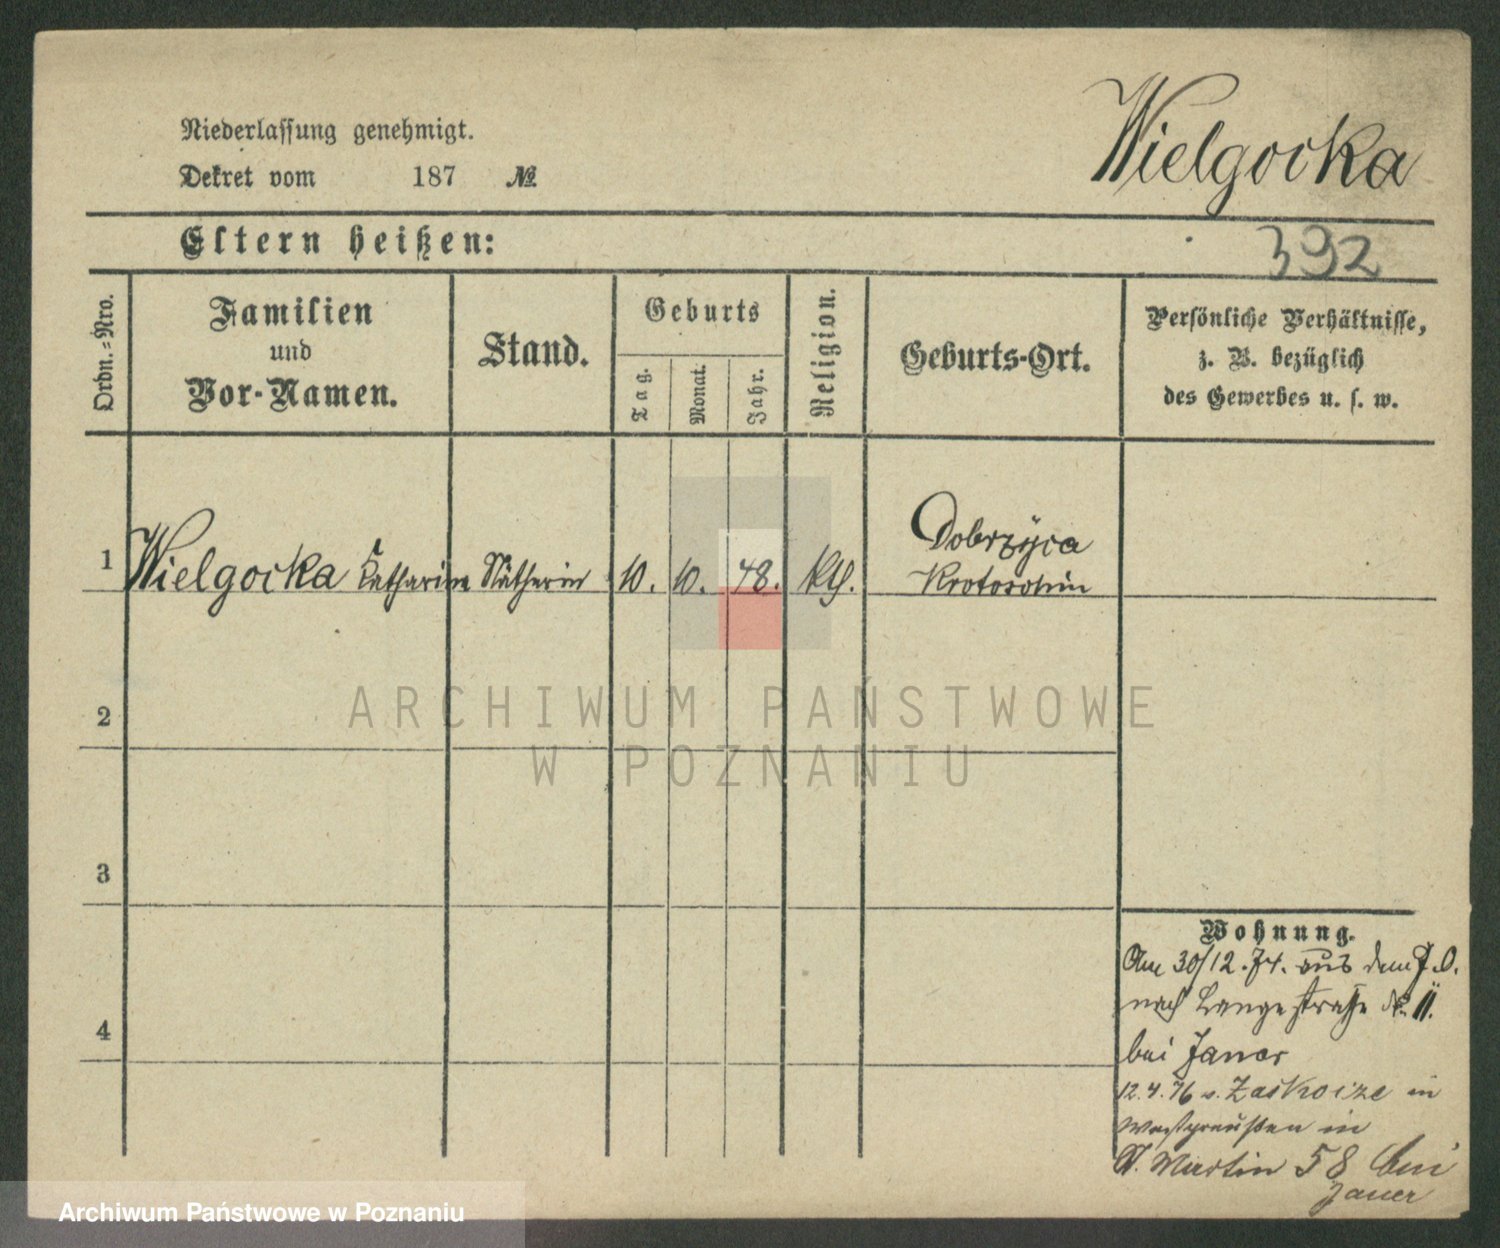 Wielgocka
Niederlassung genehmigt.
Dekret vom 187 №
Eltern heißen:
392
Ordn.=Nro.
Familien
und
Vor-Namen.
Stand.
Geburts
Tag.
Monat.
Jahr.
Religion.
Geburts-Ort.
Persönliche Verhältnisse,
z. B. bezüglich
des Gewerbes u. s. w.
1 Wielgocka Katharina Nätherin 10. 10. 48. kth. Dobrzyca
Krotoschin
2
3
4
Wohnung.
Am 30/12. 74. aus dem
nach Lange straße № 11.
bei Janos
12.4.76 v. in
Westpreußen in
St. Martin 58 bei
Janer
ARCHIWUM PAŃSTWOWE
W POZNANIU
Archiwum Państwowe w Poznaniu